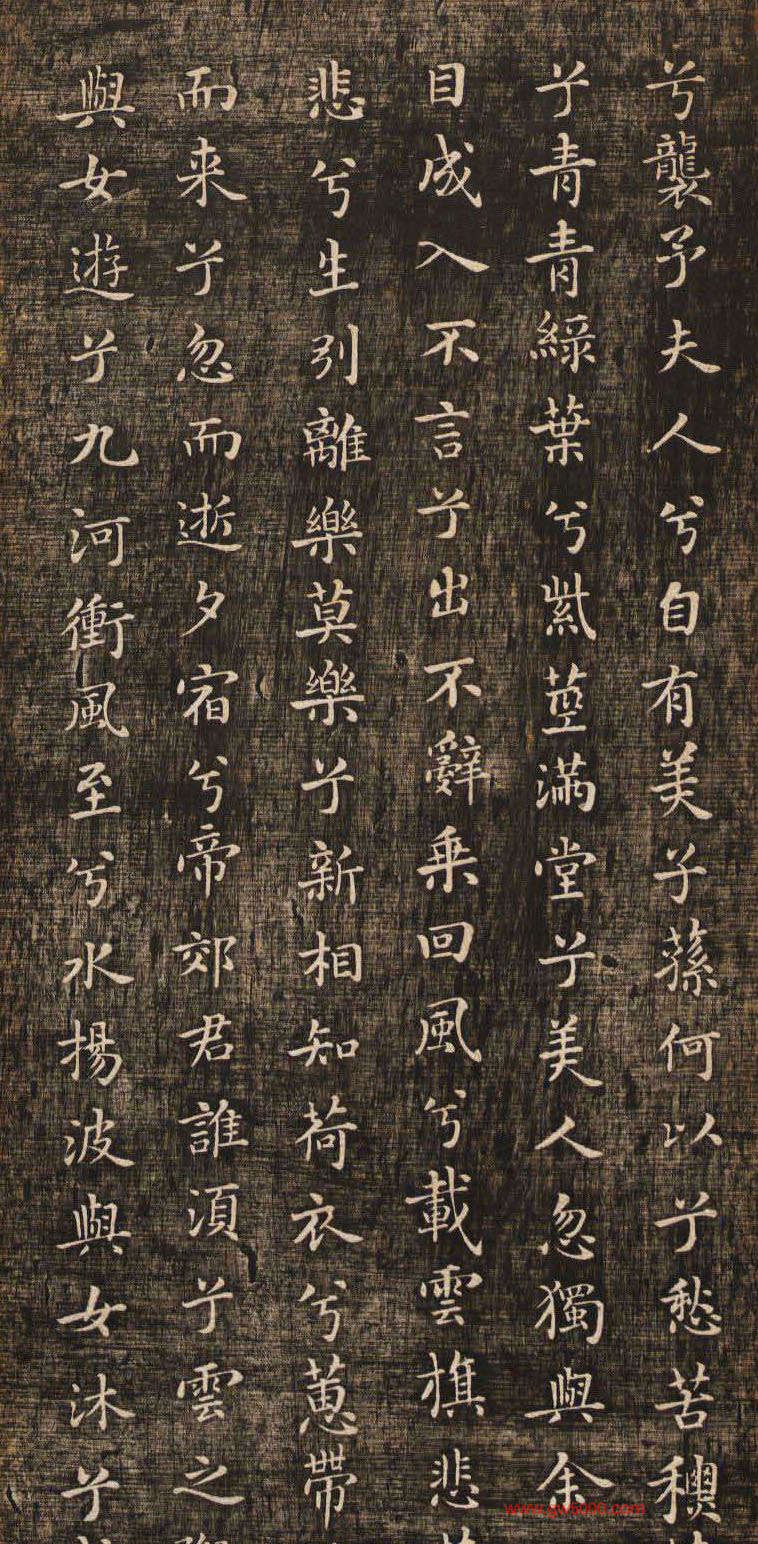 兮襲予夫人兮自有美子蓀何以兮愁苦
兮青青綠葉兮紫莖滿堂兮美人忽獨與余
目成入不言兮出不辭乗回風兮載雲旗悲
悲兮生别離樂莫樂兮新相知荷衣兮蕙帶
而来兮忽而逝夕宿兮帝郊君誰須兮雲之
與女遊兮九河衝風至兮水揚波與女沐兮